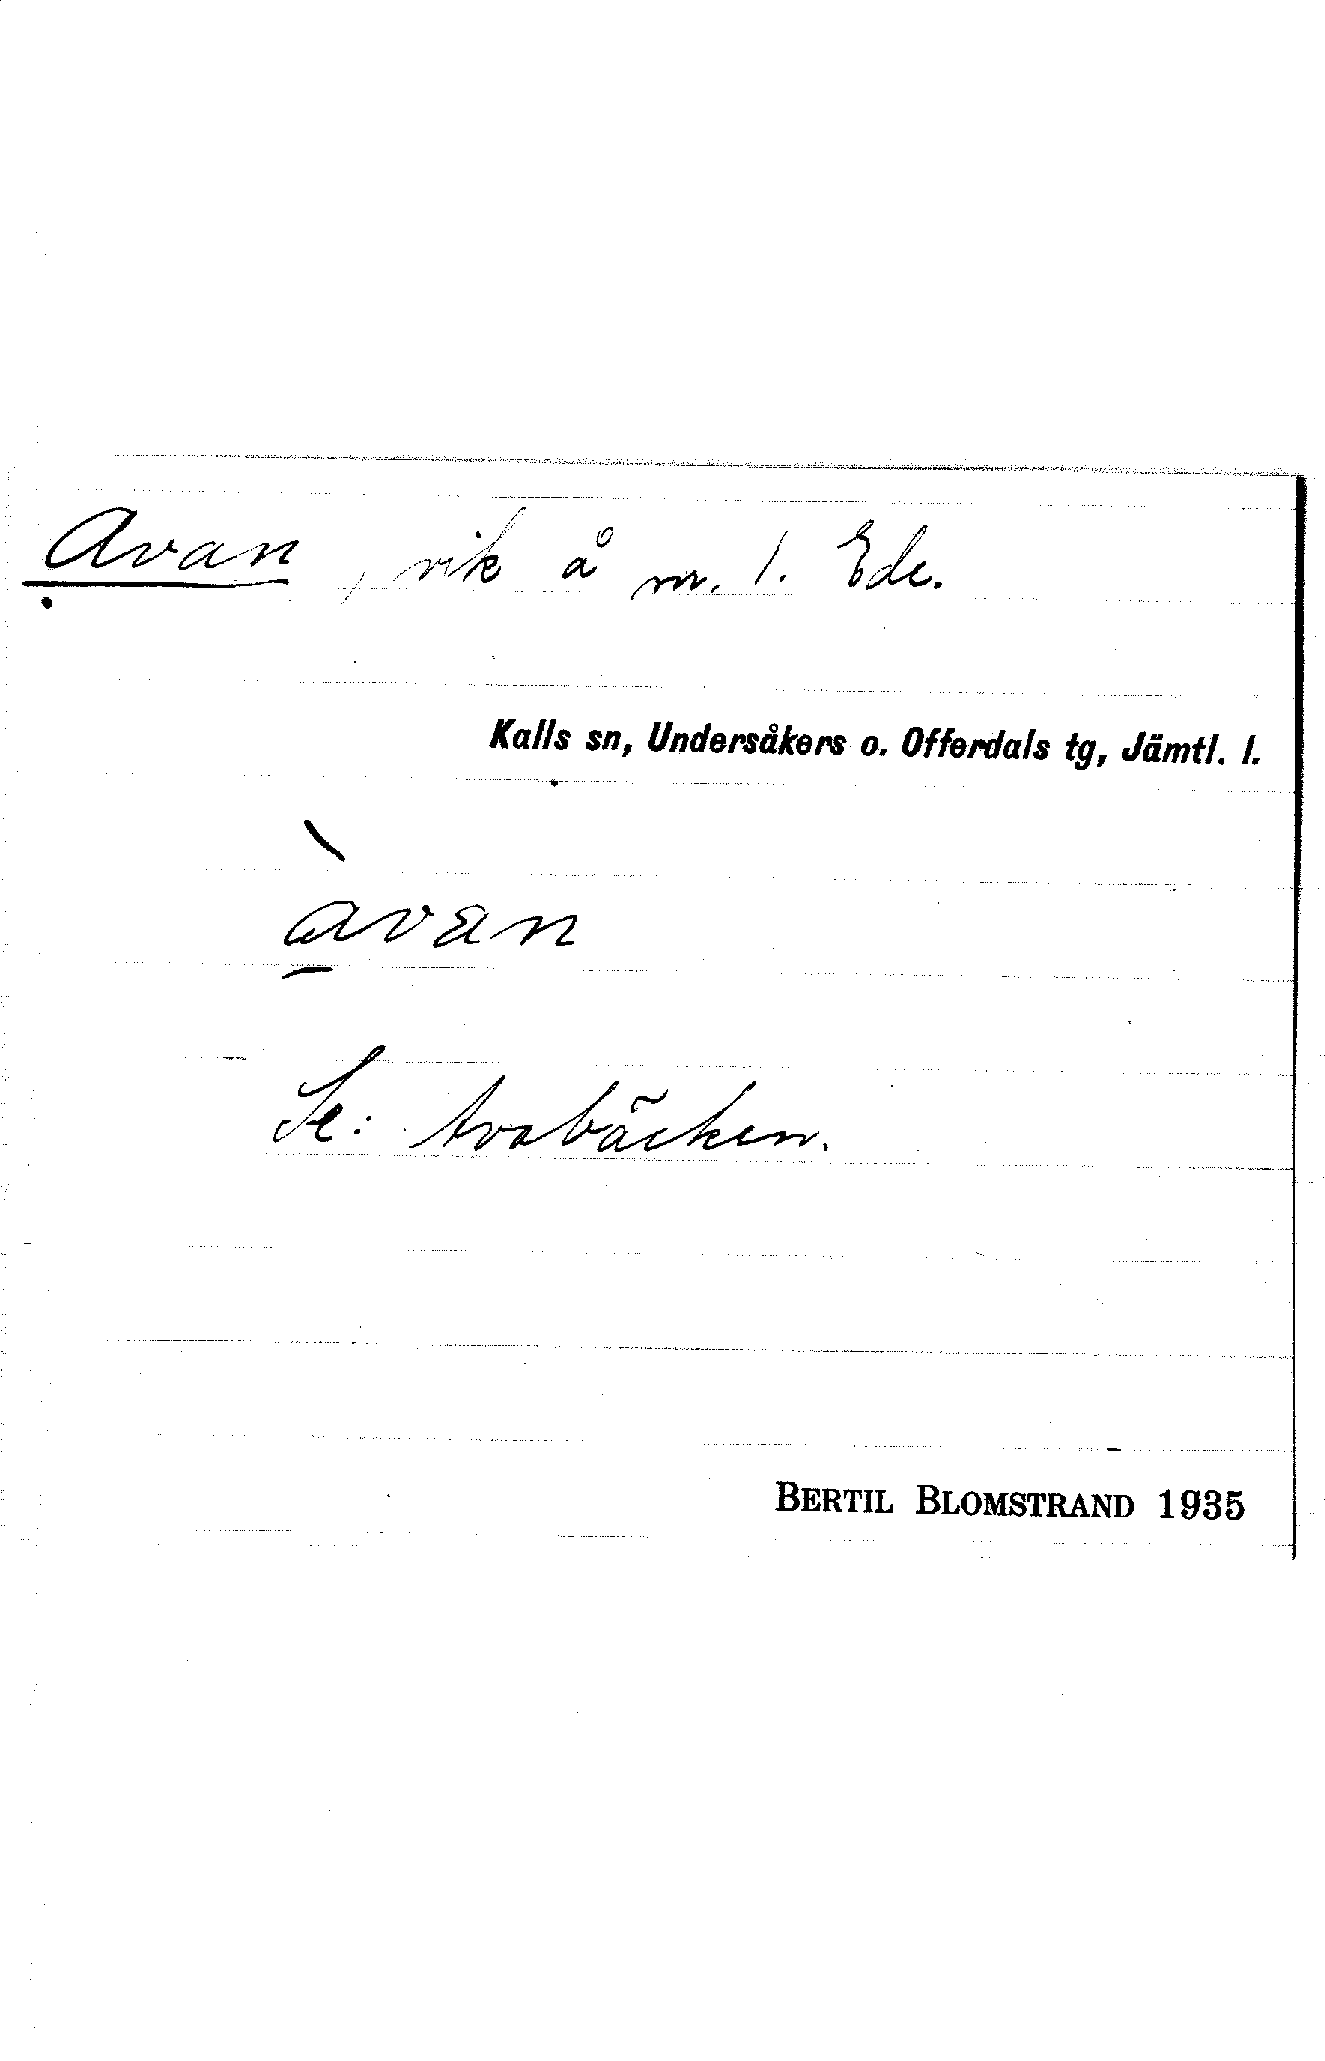 Avan, vik å nr. 1. Ede.
Kalls sn, Undersåkers o. Offerdals tg, Jämtl. l.
àvan
Se: Avabäcken.
BERTIL BLOMSTRAND 1935